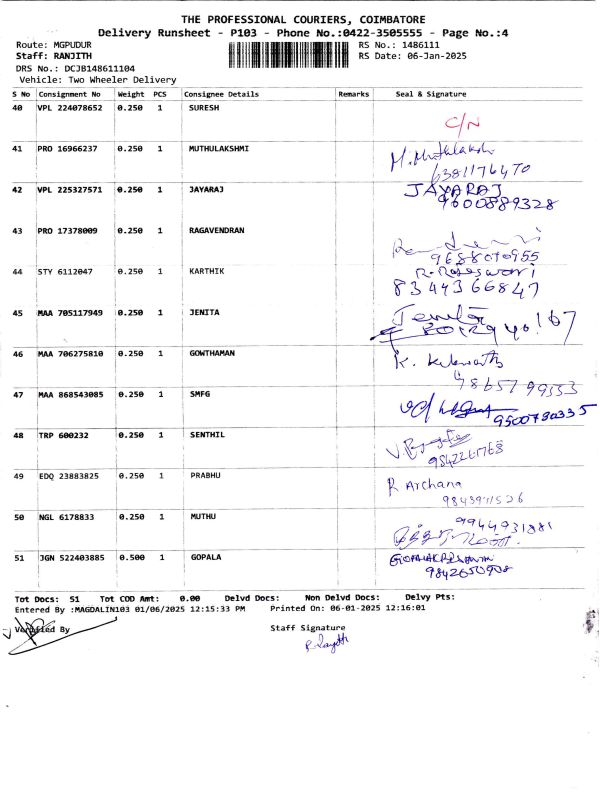 THE PROFESSIONAL COURIERS, COIMBATORE
Delivery Runsheet - P103 - Phone No.:0422-3505555 - Page No.:4
Route: MGPUDUR RS No.: 1486111
Staff: RANJITH RS Date: 06-Jan-2025
DRS No.: DCJB148611104
Vehicle: Two Wheeler Delivery
S No Consignment No Weight PCS Consignee Details Remarks Seal & Signature
40 VPL 224078652 0.250 1 SURESH
C/N
41 PRO 16966237 0.250 1 MUTHULAKSHMI
6381176470
42 VPL 225327571 0.250 1 JAYARAJ JAYARAJ
9600889328
43 PRO 17378009 0.250 1 RAGAVENDRAN
9688070955
44 STY 6112047 0.250 1 KARTHIK R. Rajeswari
8344366847
45 MAA 705117949 0.250 1 JENITA Jenita
46 MAA 706275810 0.250 1 GOWTHAMAN
47 MAA 868543085 0.250 1 SMFG
9500730335
48 TRP 600232 0.250 1 SENTHIL
49 EDQ 23883825 0.250 1 PRABHU R Archana
50 NGL 6178833 0.250 1 MUTHU 9944931881
51 JGN 522403885 0.500 1 GOPALA
9842650908
Tot Docs: 51 Tot COD Amt: 0.00 Delvd Docs: Non Delvd Docs: Delvy Pts:
Entered By :MAGDALIN103 01/06/2025 12:15:33 PM Printed On: 06-01-2025 12:16:01
Verified By Staff Signature